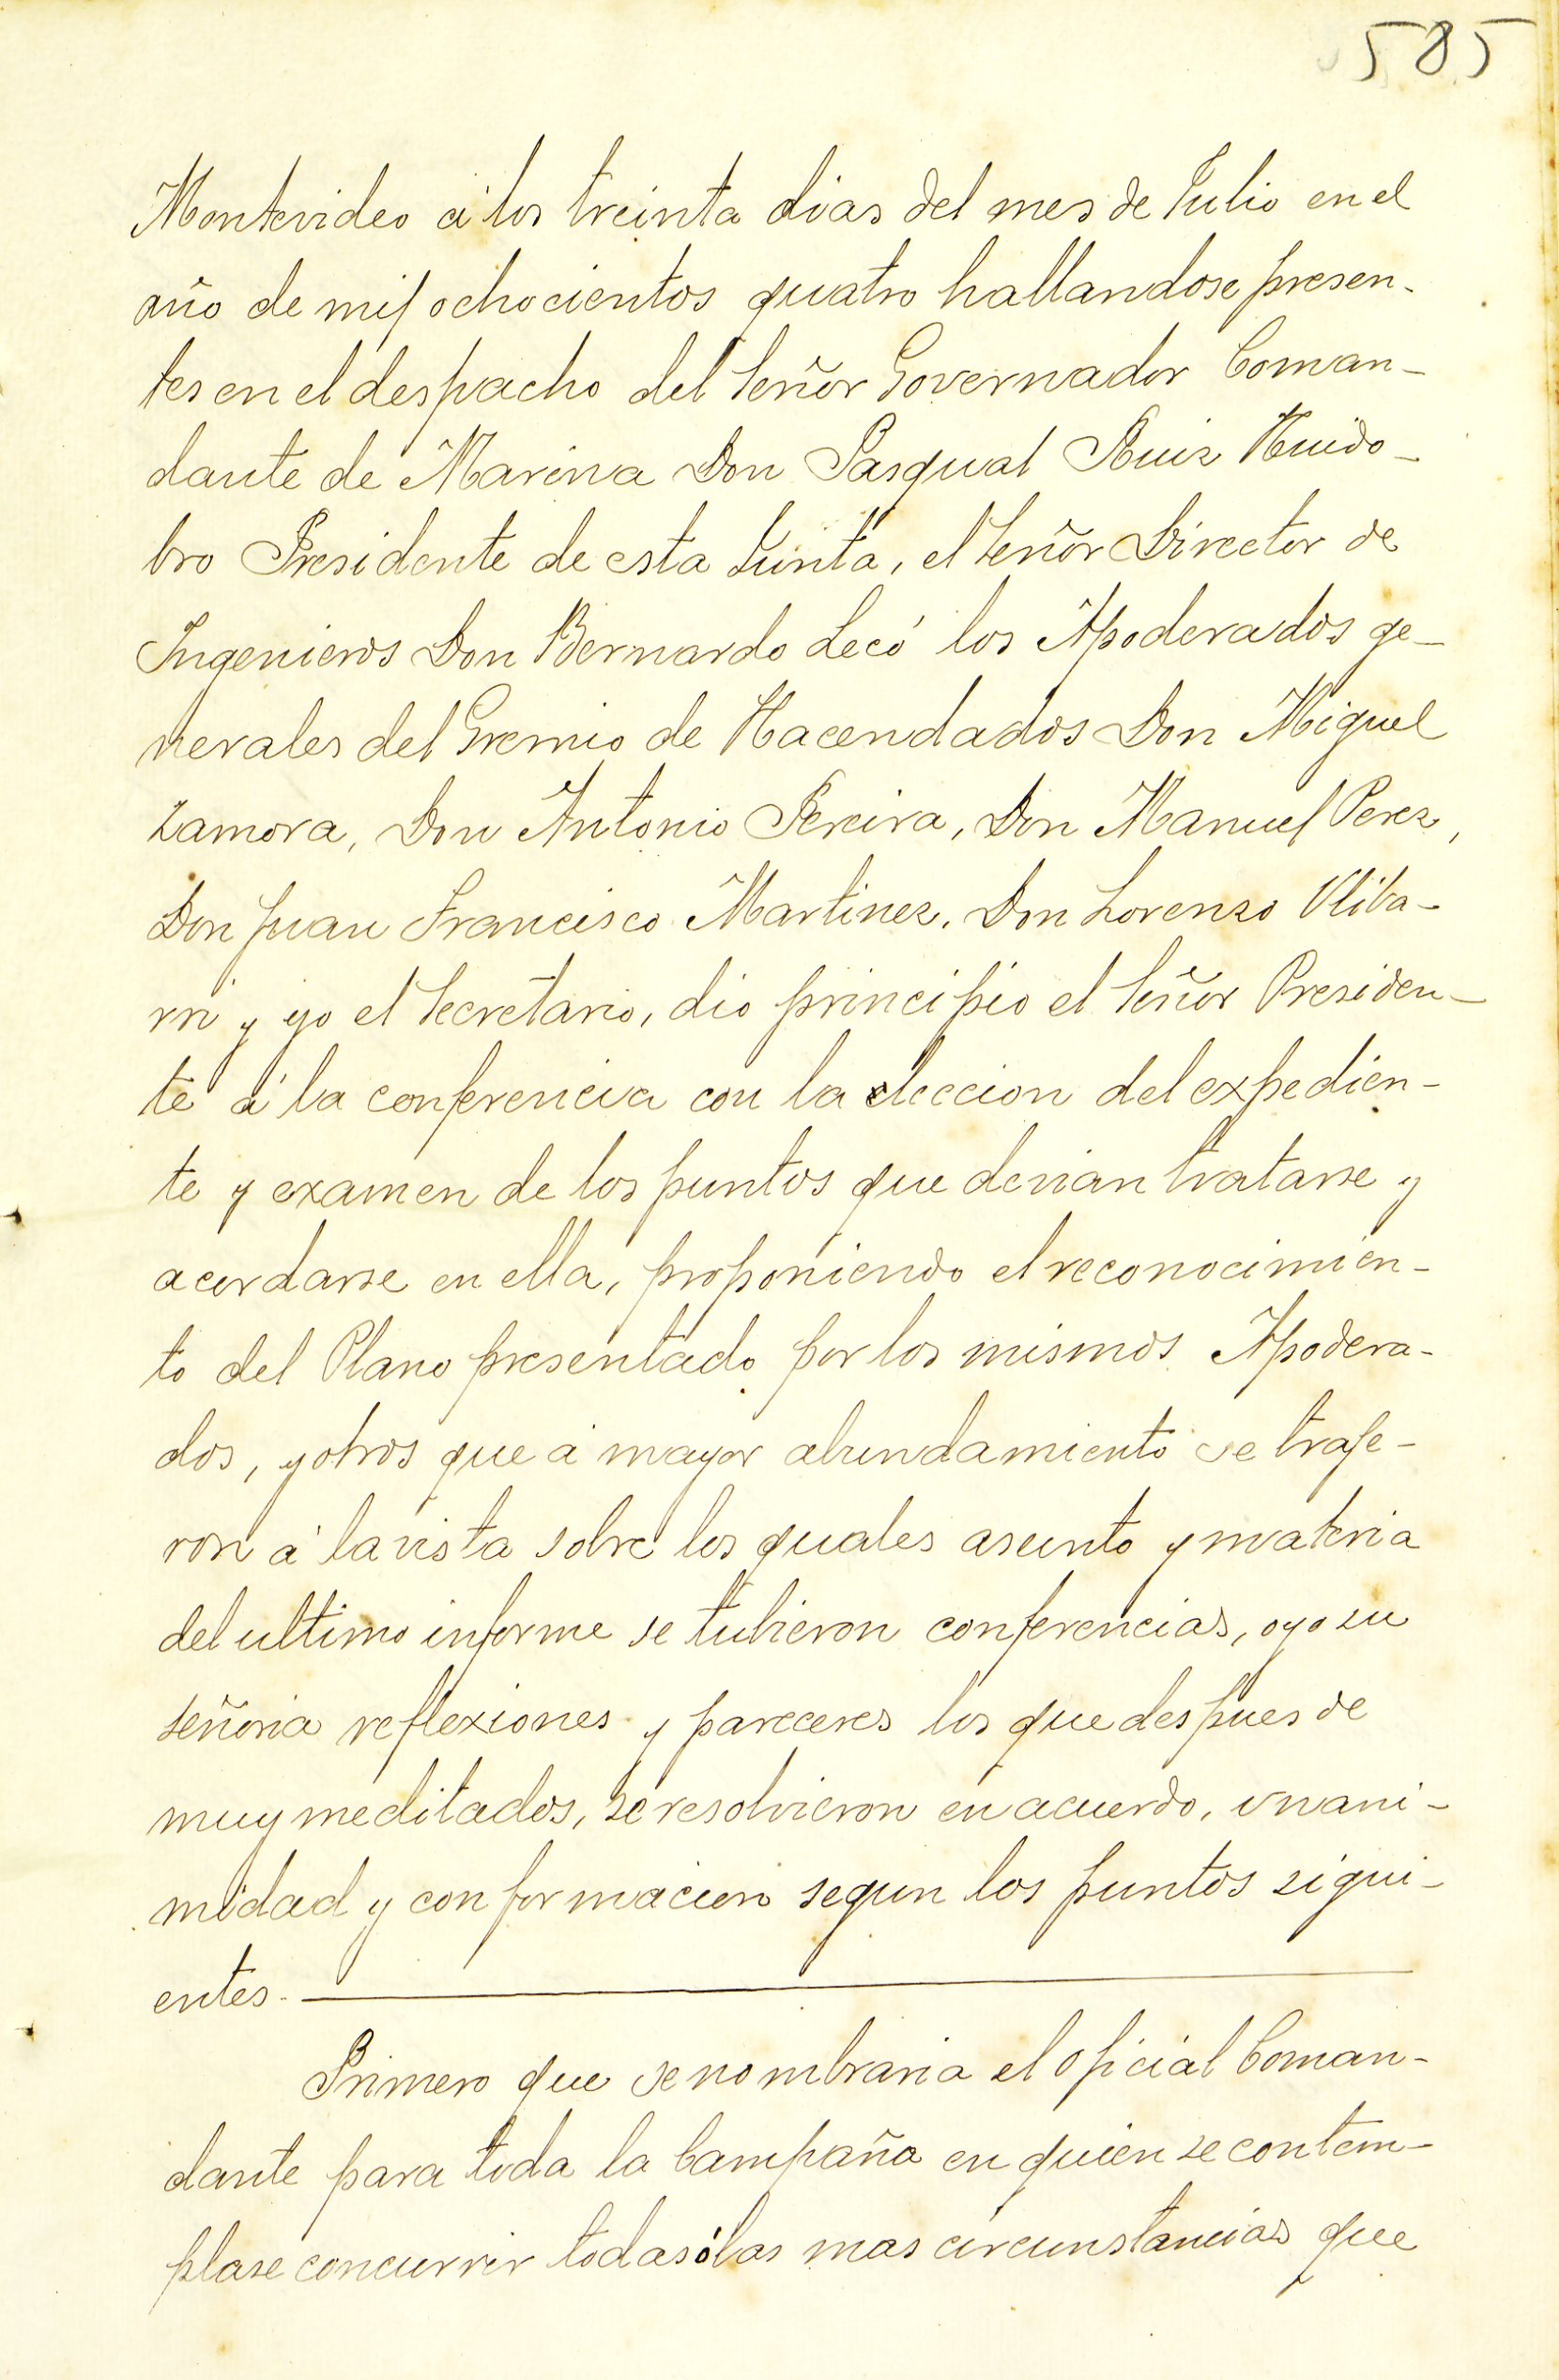 585
Montevideo á los treinta dias del mes de Julio en el
año de mil ochocientos quatro hallandose presen-
tes en el despacho del Señor Governador Coman-
dante de Marina Don Pasqual Ruiz Huido-
bro Presidente de esta Junta, el Señor Director de
Ingenieros Don Bernardo Lecó los Apoderados ge-
nerales del Gremio de Hacendados Don Miguel
Zamora, Don Antonio Pereira, Don Manuel Perez,
Don Juan Francisco Martinez, Don Lorenzo Uliba-
rri y yo el Secretario, dio principio el Señor Presiden-
te á la conferencia con la eleccion del expedien-
te y examen de los puntos que devian tratarse y
acordarse en ella, proponiendo el reconocimien-
to del Plano presentado por los mismos Apodera-
dos, y otros que á mayor abundamiento se traje-
ron á la vista sobre los quales asunto y materia
del ultimo informe se tubieron conferencias, oyo su
señoria reflexiones y pareceres los que despues de
muy meditados, se resolvieron en acuerdo, unani-
midad y conformacion segun los puntos sigui-
entes.
Primero que se nombraria el oficial Coman-
dante para toda la Campaña en quien se contem-
plase concurrir todas ó las mas circunstancias que